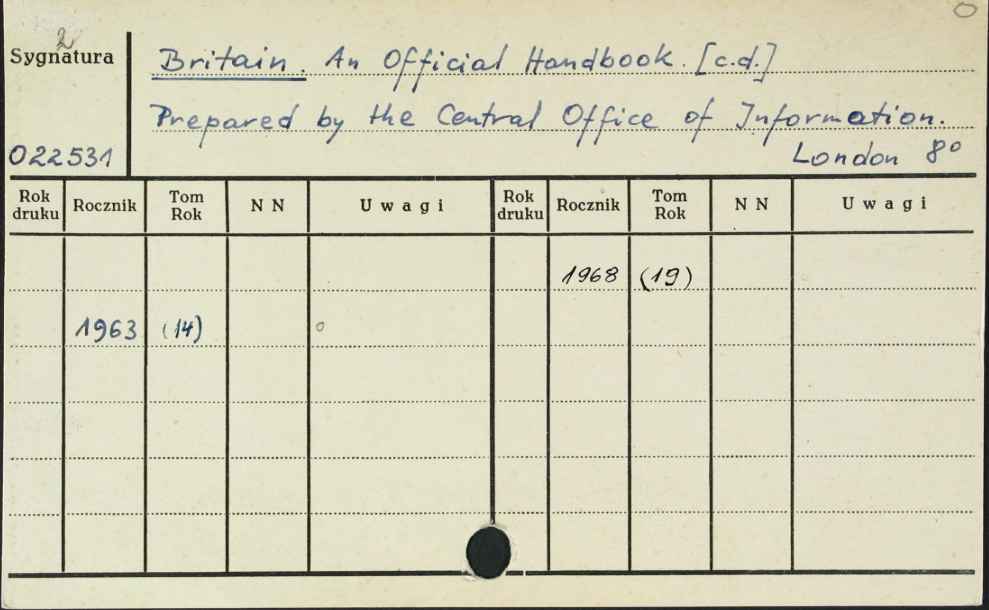 0
2
Sygnatura
Britain. An Official Handbook. [c.d.]
Prepared by the Central Office of Information.
022531
London 8°
Rok druku Rocznik Tom Rok N N Uwagi Rok druku Rocznik Tom Rok N N Uwagi
1968 (19)
1963 (14)